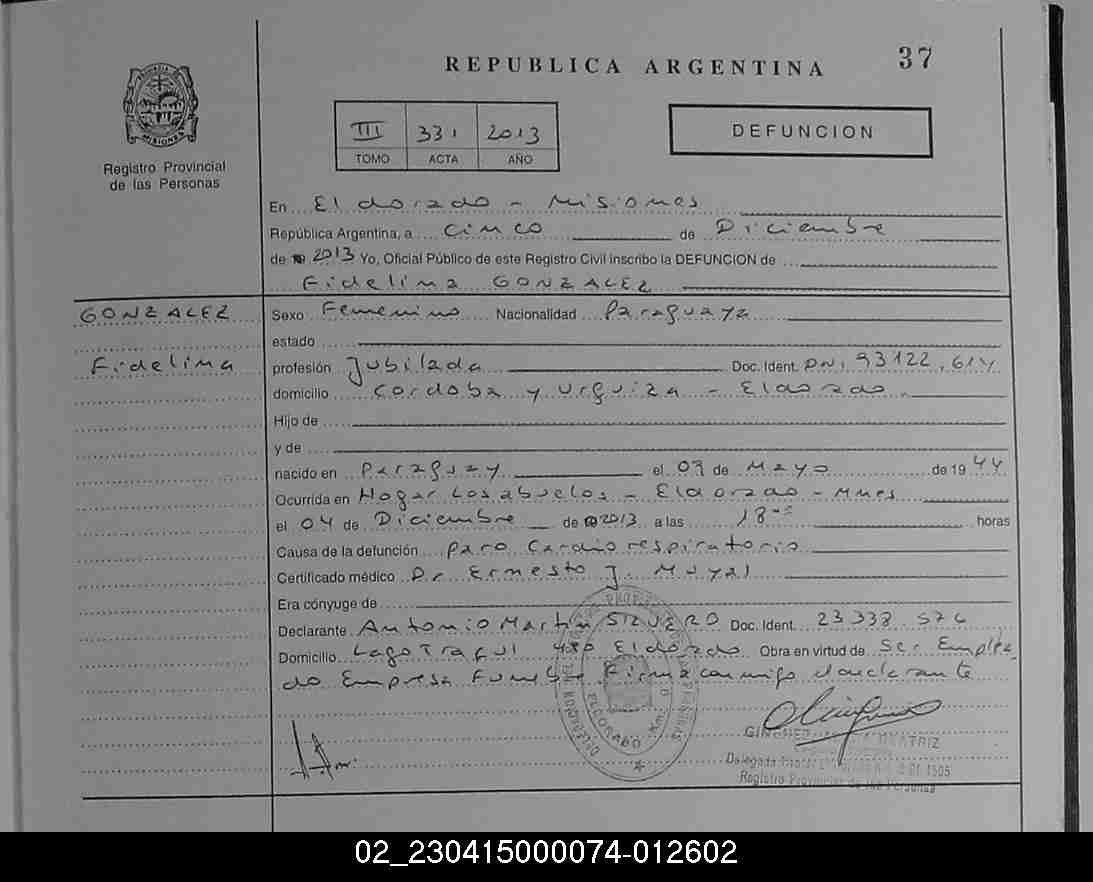 REPUBLICA ARGENTINA
37
PROVINCIA DE MISIONES
Registro Provincial
de las Personas
III 331 2013
TOMO ACTA AÑO
DEFUNCION
En Eldorado - Misiones
República Argentina, a Cinco de Diciembre
de 2013 Yo, Oficial Público de este Registro Civil inscribo la DEFUNCION de
Fidelina GONZALEZ
GONZALEZ
Fidelina
Sexo Femenino Nacionalidad Paraguaya
estado
profesión Jubilada Doc. Ident. DNI 93122.614
domicilio Cordoba y Urquiza - Eldorado
Hijo de
y de
nacido en Paraguay el 09 de Mayo de 1944
Ocurrida en Hogar Los abuelos - Eldorado - Mnes
el 04 de Diciembre de 2013 a las 18 horas
Causa de la defunción paro Cardio respiratorio
Certificado médico Dr Ernesto J. Muyal
Era cónyuge de
Declarante Antonio Martin Doc. Ident. 23 338
Domicilio Lago Traful 480 Eldorado Obra en virtud de Ser Emplea
do Empresa Funebre Firma conmigo el declarante
ELDORADO
BEATRIZ
Delegada
Registro Provincial de las Personas
02_230415000074-012602